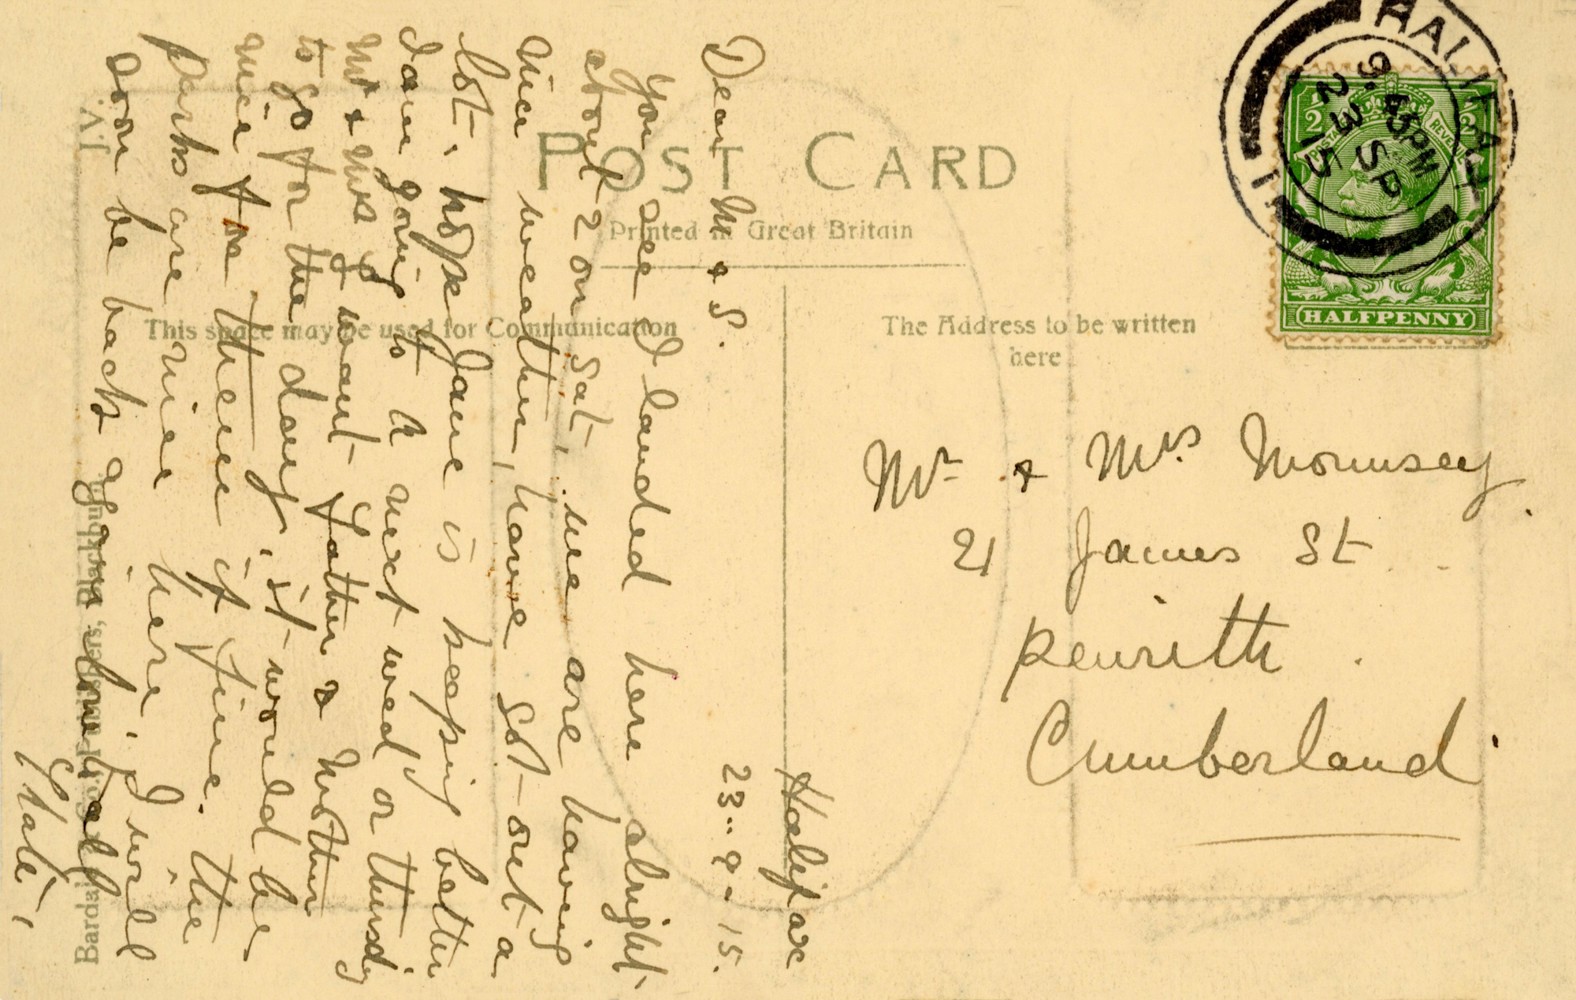 POST CARD
Printed in Great Britain
This space may be used for Communication
The Address to be written
here
HALIFAX
9. PM
23 SP
15
1
HALFPENNY
Halifax
23..9-15.
Dear M & S.
you see I landed here alright
about 2 on Sat, we are having
nice weather, have got out a
lot, hope Jane is keeping better
I am going to A next wed or thursdy
Mr & Mrs J want Father & Mother
to go for the day, it would be
nice for them if fine. the
parks are nice here. I will
soon be back again
Mr & Mrs
21 James St
Penrith
Cumberland
Bardsley Publishers, Blackburn